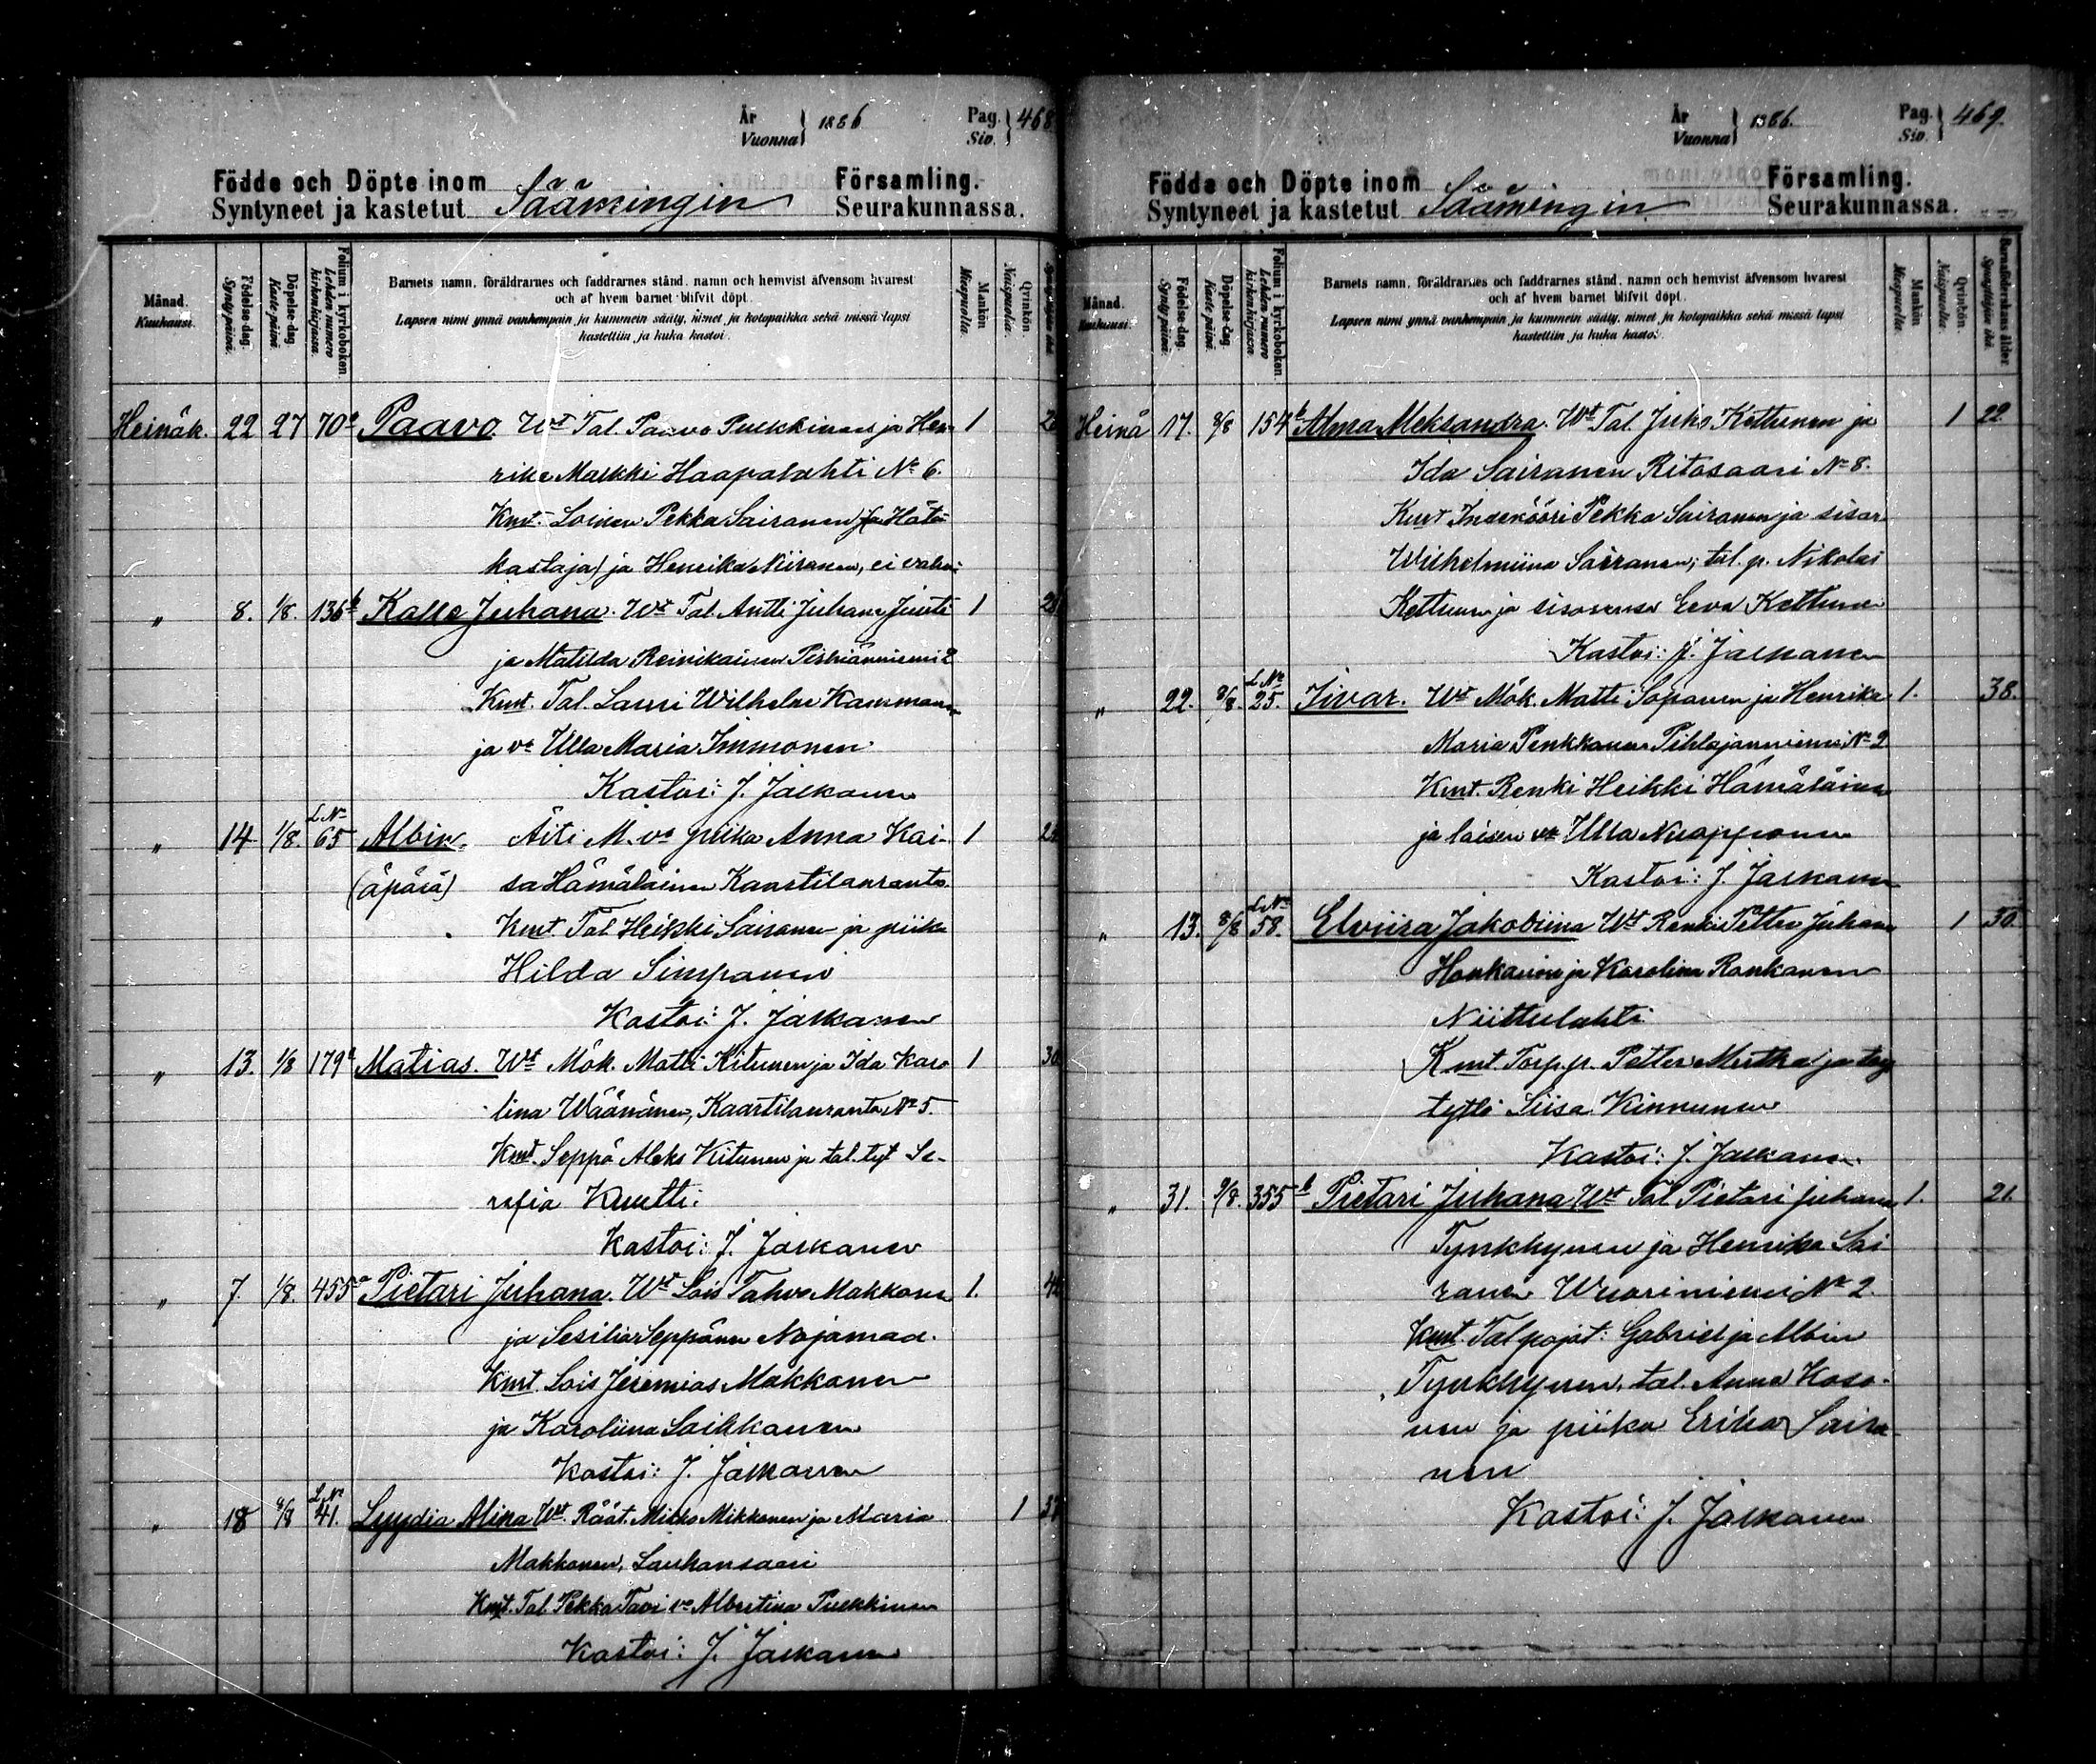 År
Vuonna } 1886
Pag.
Siv. } 468
Födde och Döpte inom Församling.
Syntyneet ja kastetut Säämingin Seurakunnassa.
Månad.
Kuukausi.
Födelse-dag.
Synty-päivä.
Döpelse-dag.
Kaste-päivä.
Folium i kyrkoboken.
Lehden numero kirkonkirjassa.
Barnets namn, föräldrarnes och faddrarnes stånd, namn och hemvist äfvensom hvarest
och af hvem barnet blifvit döpt.
Lapsen nimi ynnä vanhempain ja kummein sääty, nimet ja kotopaikka sekä missä lapsi
kastettiin ja kuka kastoi.
Mankön
Miespuolia.
Qvinkön.
Naispuolia.
Heinäk. 22 27 70 Paavo. Wt Tal. Paavo Pulkkinen ja Hen- 1
rika Malkki Haapalahti No 6.
Kmt. Loinen Pekka Sairanen (ja Hätä-
kastaja) ja Henrika Niiranen, ei
" 8. 1/8. 136b Kalle Juhana. Wt Tal. Antti Juhana Juuti 1
ja Matilda Reinikainen 2
Kmt. Tal. Lauri Wilhelm Kammonen
ja vo Ulla Maria Immonen
Kastoi: J. Jalkanen
" 14 1/8. L. No 65 Albin. Äiti M. vo piika Anna Kai- 1
(äpärä) sa Hämäläinen Kaartilanranta.
Kmt. Tal. Heikki Sairanen ja piika
Hilda Simpanen
Kastoi: J. Jalkanen
" 13. 1/8 179 Matias. Wt Mök. Matti Kitunen ja Ida Karo 1
lina Wäänänen, Kaartilanranta No 5.
Kmt. Seppä Aleks Kitunen ja tal. tyt Se-
rafia Kuutti.
Kastoi: J. Jalkanen
" 7. 1/8. 455a Pietari Juhana. Wt Lois Tahvo Makkonen 1.
ja Sesilia Seppänen Nojamaa.
Kmt. Lois Jeremias Makkonen
ja Karoliina Laikkanen
Kastoi: J. Jalkanen
" 18 8/8 L. No 41. Lyydia Alina Wt. Räät. Mikko Mikkonen ja Maria 1
Makkonen, Laukansaari
Kmt. Tal. Pekka Tavi vo Albertina Pulkkinen
Kastoi: J. Jalkanen
År
Vuonna } 1886.
Pag.
Siv. } 469.
Födda och Döpte inom Församling.
Syntyneet ja kastetut Säämingin Seurakunnassa.
Månad.
Kuukausi.
Födelse-dag.
Synty-päivä.
Döpelse-dag.
Kaste-päivä.
Folium i kyrkoboken.
Lehden numero kirkonkirjassa.
Barnets namn, föräldrarnes och faddrarnes stånd, namn och hemvist äfvensom hvarest
och af hvem barnet blifvit döpt.
Lapsen nimi ynnä vanhempain ja kummein sääty, nimet ja kotopaikka sekä missä lapsi
kastettiin ja kuka kastoi.
Mankön
Miespuolia.
Qvinkön.
Naispuolia.
Barnaföderskans ålder.
Synnyttäjän ikä.
Heinä 17. 8/8 154b Alma Aleksandra. Wt Tal. Juho Kettunen ja 1 22.
Ida Sairanen Ritosaari No 8.
Kmt Pekka Sairanen ja sisar
Wilhelmiina Sairanen; tal. p. Nikolai
Kettunen ja sisarensa Eeva Kettunen
Kastoi: J. Jalkanen
" 22. 8/8. L. No 25. Iivar. Wt Mök. Matti Sopanen ja Henrika 1. 38.
Maria Penkkonen Pihlajanniemi No 2
Kmt. Renki Heikki Hämäläinen
ja loisen vo Ulla Nuopponen
Kastoi: J. Jalkanen
" 13. 8/8 L. No 58. Elviira Jakobiina Wt Renki Petter Juhana 1 30.
Honkanen ja Karolina Ronkanen
Niittulahti
Kmt. Torp. p. Petter Mutka ja torp
tyttö Siisa Kinnunen
Kastoi: J. Jalkanen.
" 31. 9/8. 355b Pietari Juhana Wt Tal. Pietari Juhana 1. 21.
Tynkkynen ja Henrika Sai
ranen Wuoriniemi No 2.
Kmt Tal. pojat: Gabriel ja Albin
Tynkkynen, tal. Anna Koso-
nen ja piika Erika Saira-
nen
Kastoi: J. Jalkanen